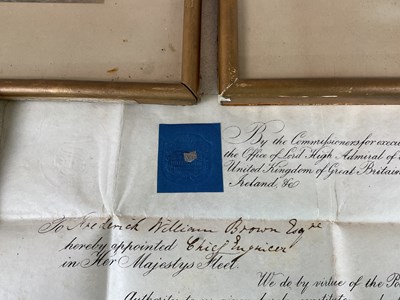 By the Commissioners for execu
the Office of Lord High Admiral of t
United Kingdom of Great Britain
Ireland, &c
To Frederick William Brown Esqre
hereby appointed Chief Engineer
in Her Majestys Fleet
We do by virtue of the Po